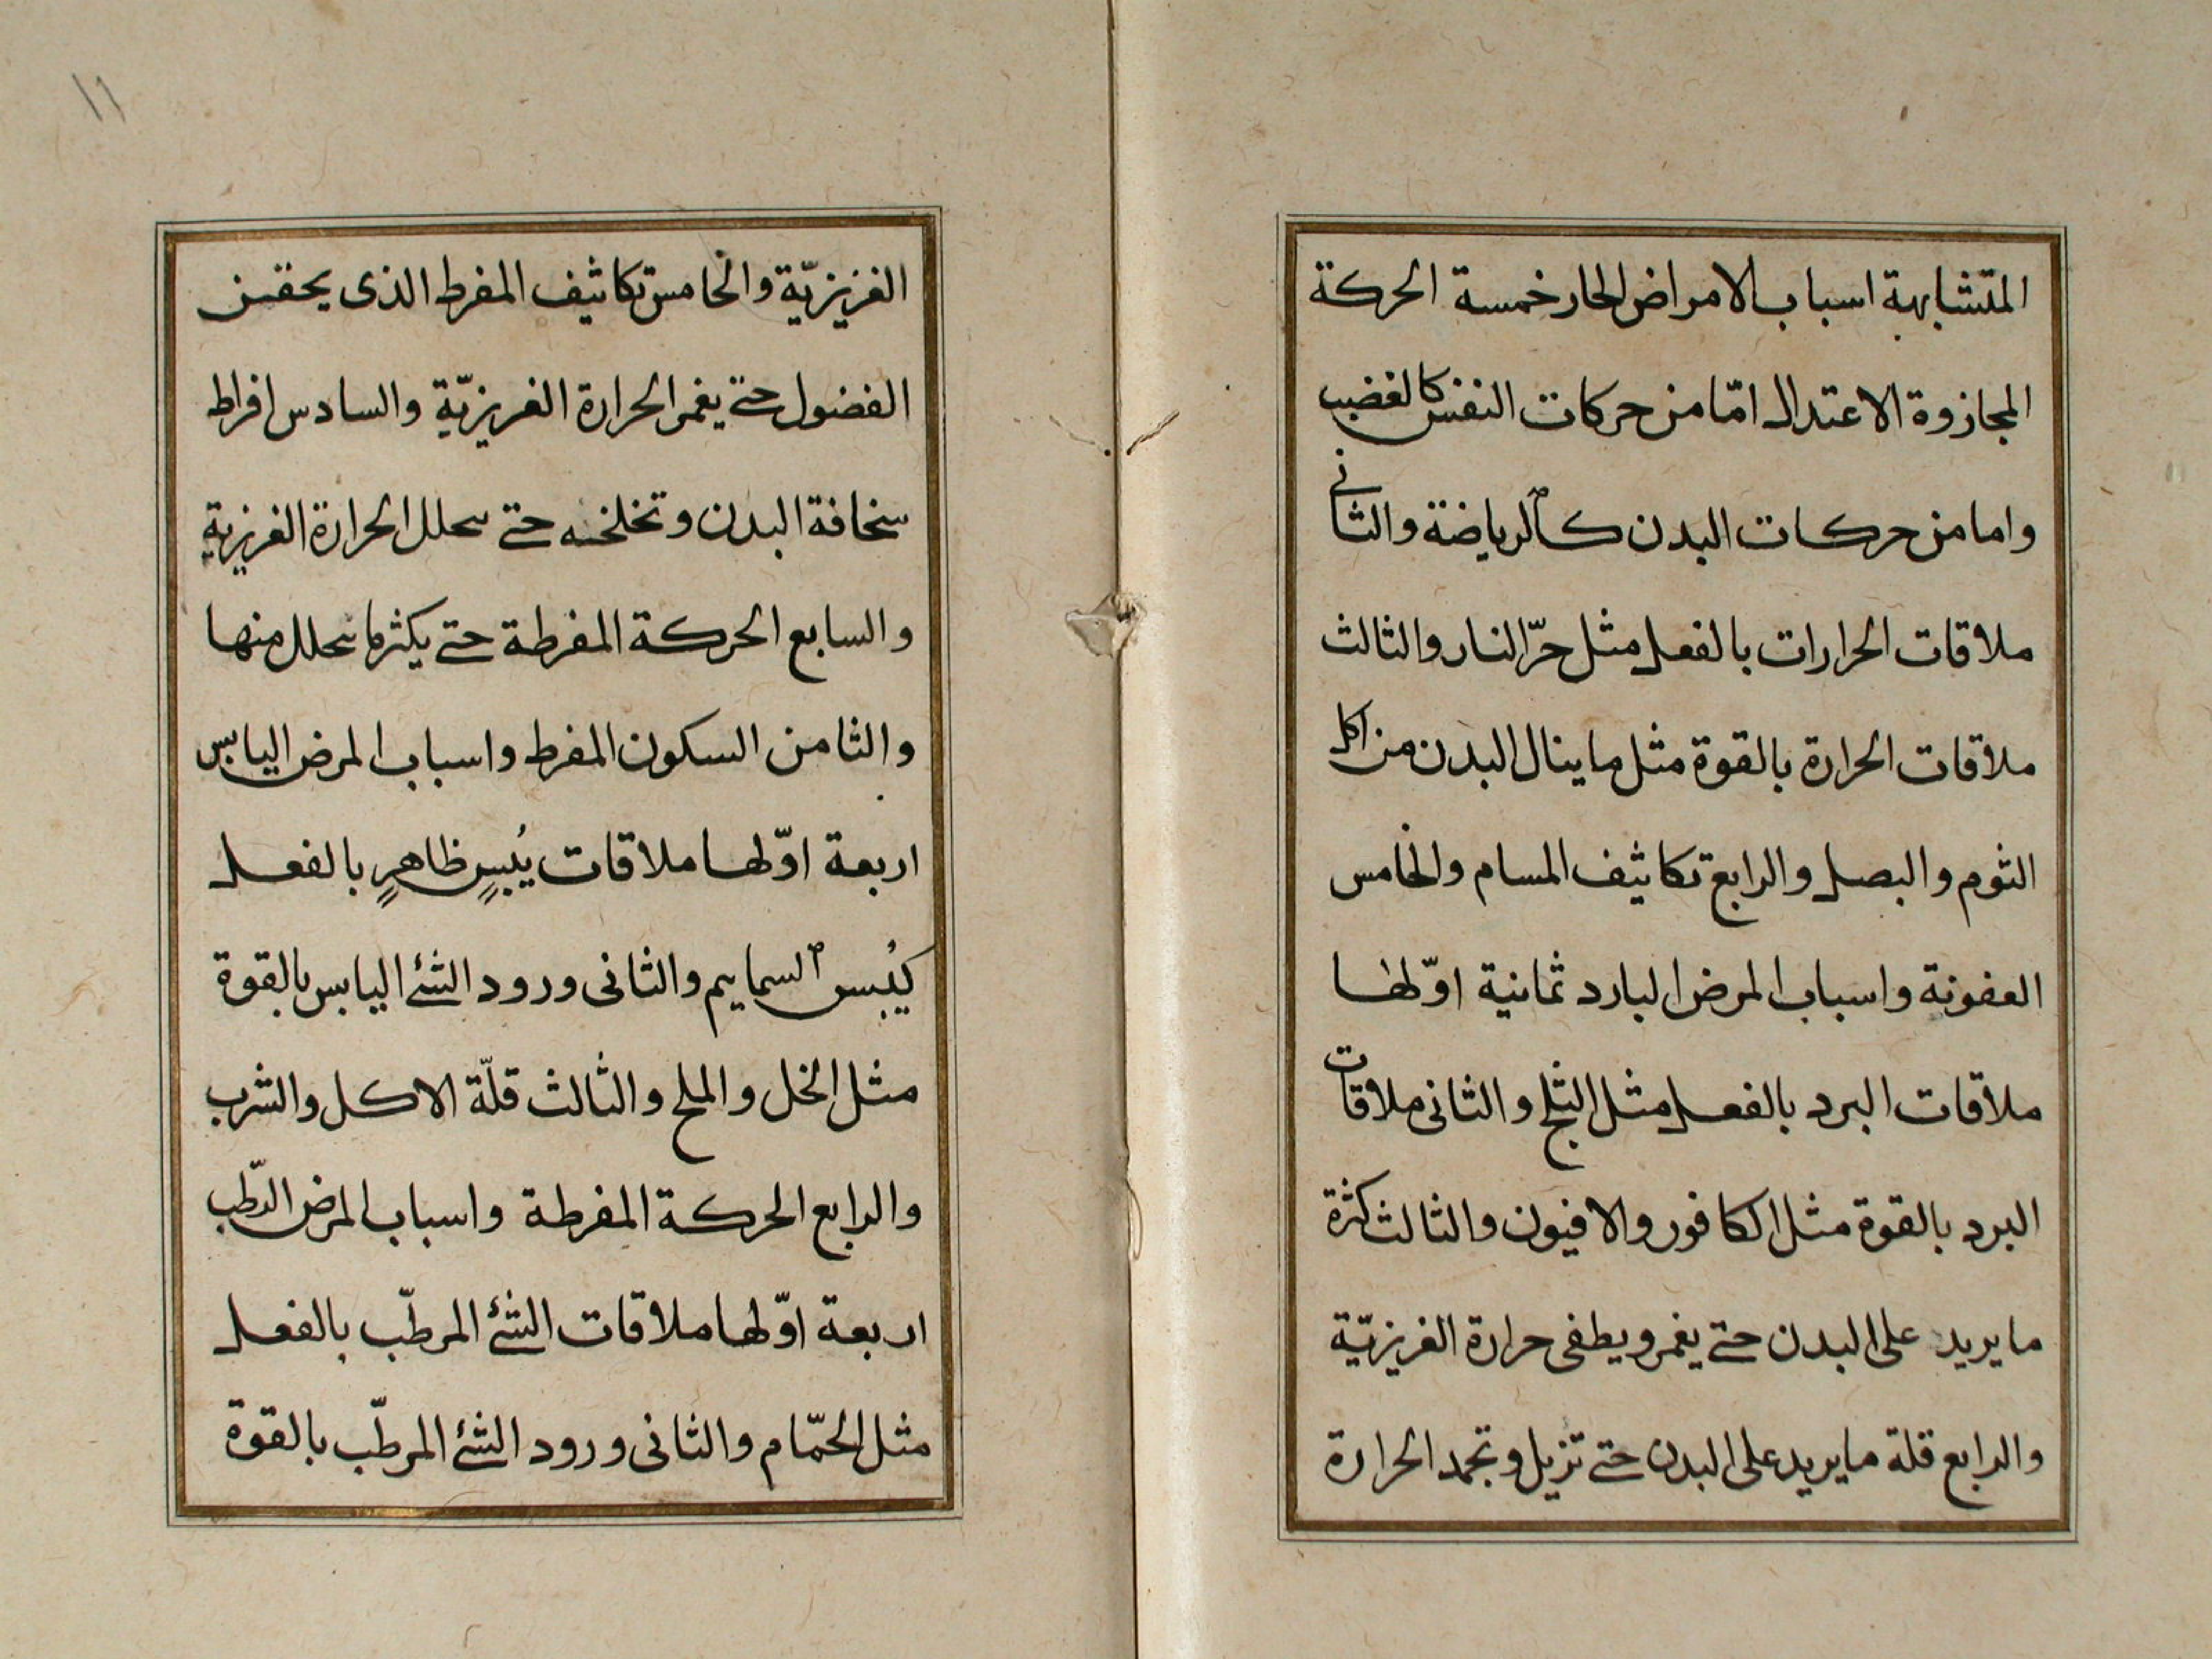 المتشابهة اسباب الامراض الحار خمسة الحركة
المجازوة الاعتدال امّا من حركات النفس كالغضب
واما من حركات البدن كالرياضة والثانى
ملاقات الحرارات بالفعل مثل حرّ النار والثالث
ملاقات الحرارة بالقوة مثل ما ينال البدن من اكل
الثوم والبصل والرابع تكاثيف المسام والخامس
العفونة واسباب المرض البارد ثمانية اوّلها
ملاقات البرد بالفعل مثل الثلج والثانى ملاقات
البرد بالقوة مثل الكافور والافيون والثالث كثرة
ما يريد على البدن حتى يغمر ويطفى حرارة الغريزيّة
والرابع قلة ما يريد على البدن حتى تزيل وتجمد الحرارة
١١
الغريزيّة والخامس تكاثيف المفرط الذى يحقن
الفضول حتى يغمر الحرارة الغريزيّة والسادس افراط
سخافة البدن وتخلخله حتى تحلل الحرارة الغريزية
والسابع الحركة المفرطة حتى يكثر ما تحلل منها
والثامن السكون المفرط واسباب المرض اليابس
اربعة اوّلها ملاقات يُبسٍ ظاهرٍ بالفعل
كيُبس السمايم والثانى ورود الشئ اليابس بالقوة
مثل الخل والملح والثالث قلّة الاكل والشرب
والرابع الحركة المفرطة واسباب المرض الرّطب
اربعة اوّلها ملاقات الشئ المرطّب بالفعل
مثل الحمّام والثانى ورود الشئ المرطّب بالقوة